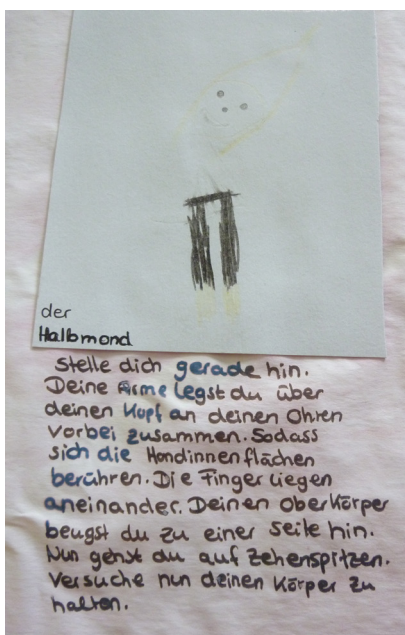 der
Halbmond
Stelle dich gerade hin.
Deine Arme legst du über
deinen Kopf an deinen Ohren
vorbei zusammen. Sodass
sich die Handinnenflächen
berühren. Die Finger liegen
aneinander. Deinen Oberkörper
beugst du zu einer Seite hin.
Nun gehst du auf Zehenspitzen.
Versuche nun deinen Körper zu
halten.